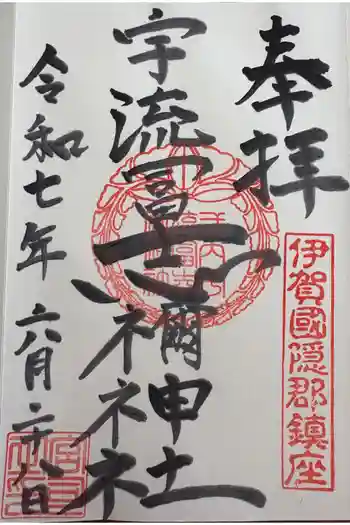 奉拝
伊賀國隠郡鎮座
宇流冨志禰神社
令和七年六月二十八日